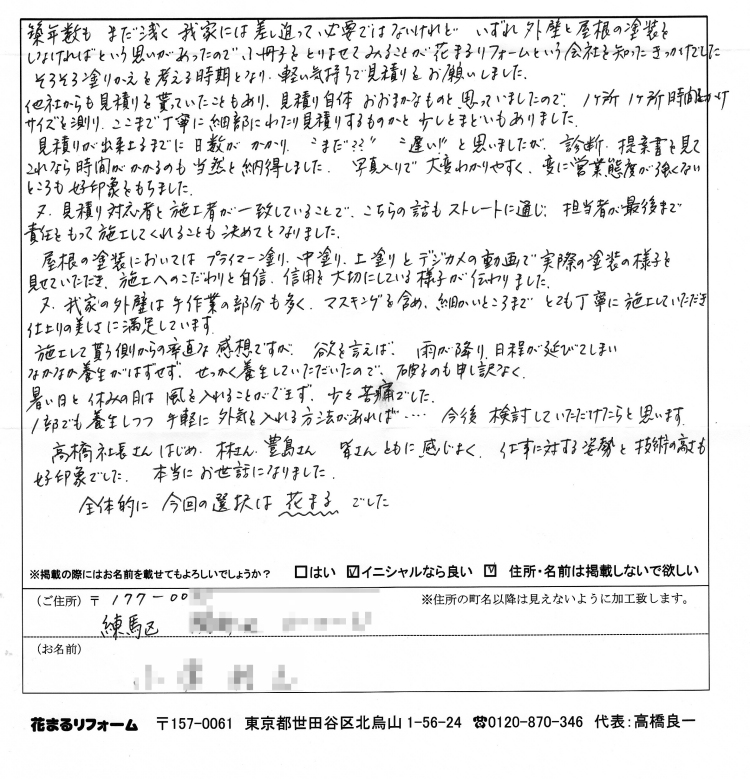 築年数も まだ浅く 我家には差し迫って必要ではないけれど いずれ 外壁と屋根の塗装を
しなければという思いがあったので、小冊子をとりよせてみることが花まるリフォームという会社を知ったきっかけでした
そろそろ塗りかえを考える時期となり、軽い気持ちで見積りをお願いしました。
他社からも見積りを貰っていたこともあり、見積り自体 おおまかなものと思っていましたので、1ヶ所 1ヶ所時間をかけ
サイズを測り、ここまで丁寧に細部にわたり見積りするものかと少しとまどいもありました。
見積りが出来上るまでに日数がかかり、"まだ??" "遅い!!" と思いましたが、診断・提案書を見て
これなら時間がかかるのも当然と納得しました。 写真入りで大変わかりやすく、変に営業態度が強くない
ところも好印象をもちました。
又、見積り対応者と施工者が一致していることで、こちらの話もストレートに通じ、担当者が最後まで
責任をもって施工してくれることも決めてとなりました。
屋根の塗装においては プライマー塗り、中塗り、上塗りとデジカメの動画で実際の塗装の様子を
見せていただき、施工へのこだわりと自信、信用を大切にしている様子が伝わりました。
又、我家の外壁は手作業の部分も多く、マスキングを含め、細かいところまで とても丁寧に施工していただき
仕上りの美しさに満足しています。
施工して貰う側からの率直な感想ですが、欲を言えば、 雨が降り、日程が延びてしまい
なかなか養生がはずせず、せっかく養生していただいたので、破るのも申し訳なく、
暑い日と休みの日は 風を入れることができず、少々苦痛でした。
1部でも養生しつつ 手軽に外気を入れる方法があれば‥‥ 今後 検討していただけたらと思います。
高橋社長さんはじめ、林さん、豊島さん 皆さんともに感じよく、仕事に対する姿勢と技術の高さも
好印象でした。 本当にお世話になりました。
全体的に 今回の選択は 花まる でした
※掲載の際にはお名前を載せてもよろしいでしょうか? □はい ☑イニシャルなら良い ☑ 住所・名前は掲載しないで欲しい
(ご住所) 〒 177-00 ※住所の町名以降は見えないように加工致します。
練馬区
(お名前)
花まるリフォーム 〒157-0061 東京都世田谷区北烏山1-56-24 ☎0120-870-346 代表:高橋良一